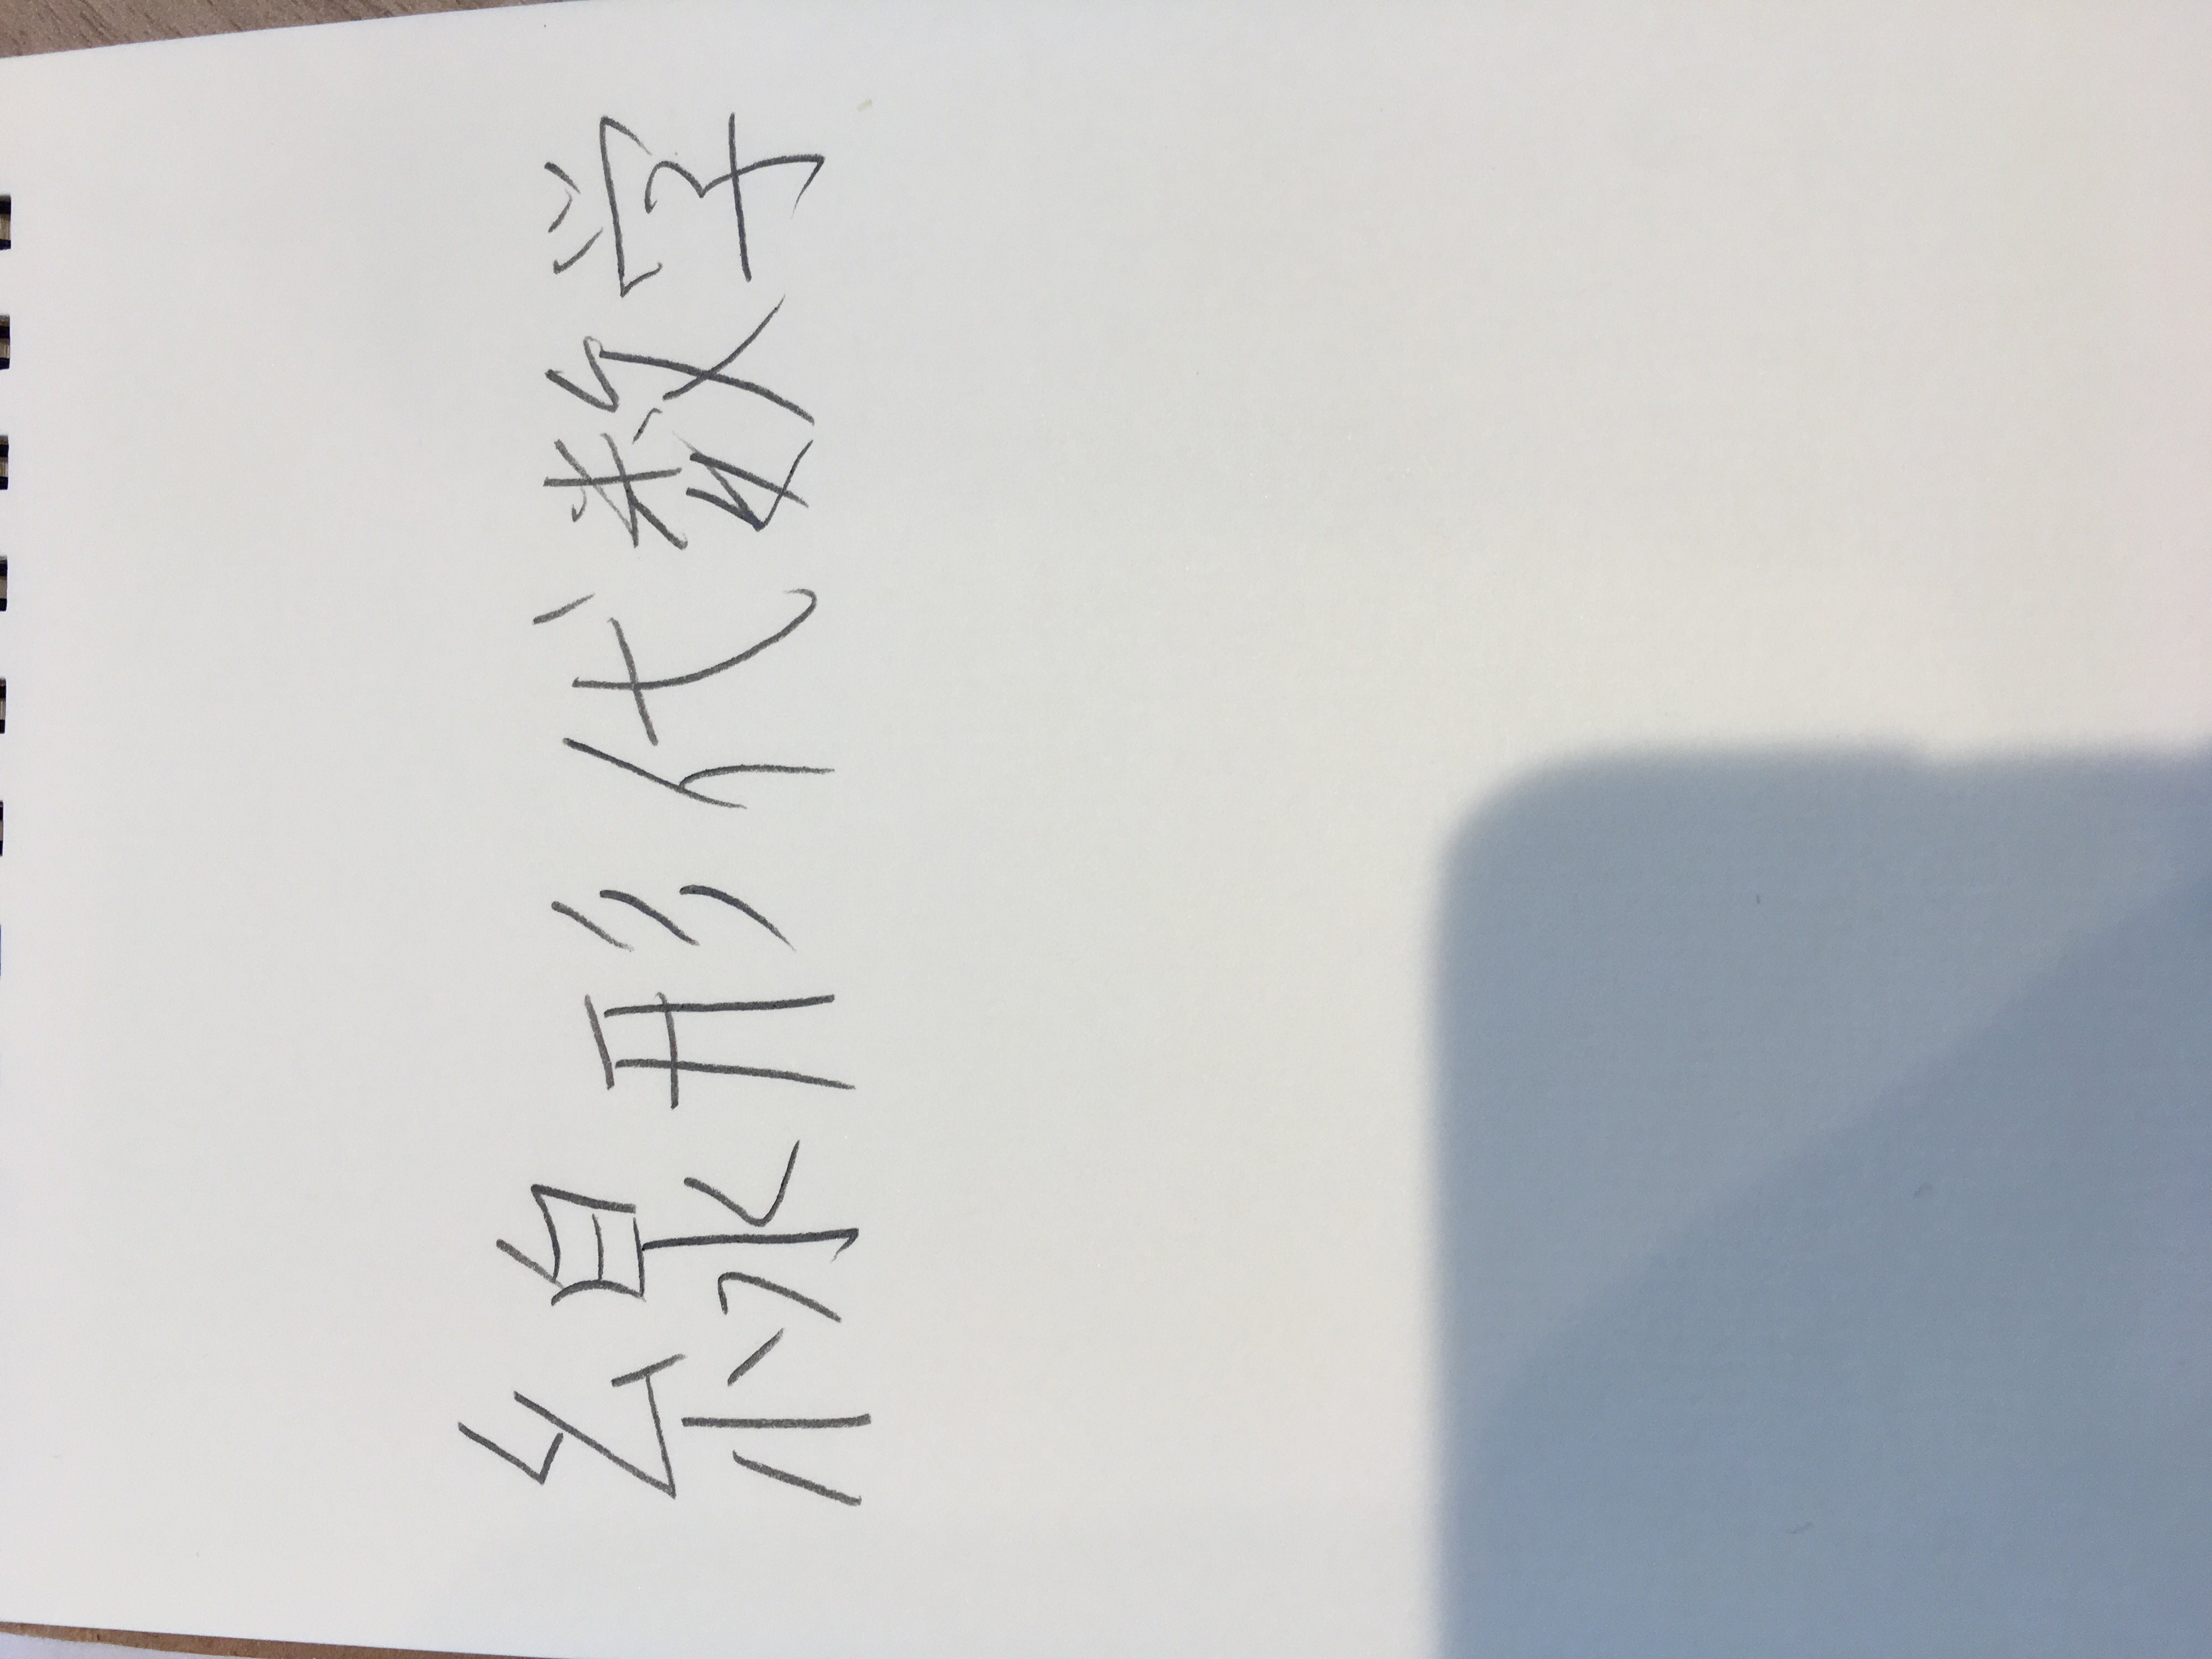 線形代数学